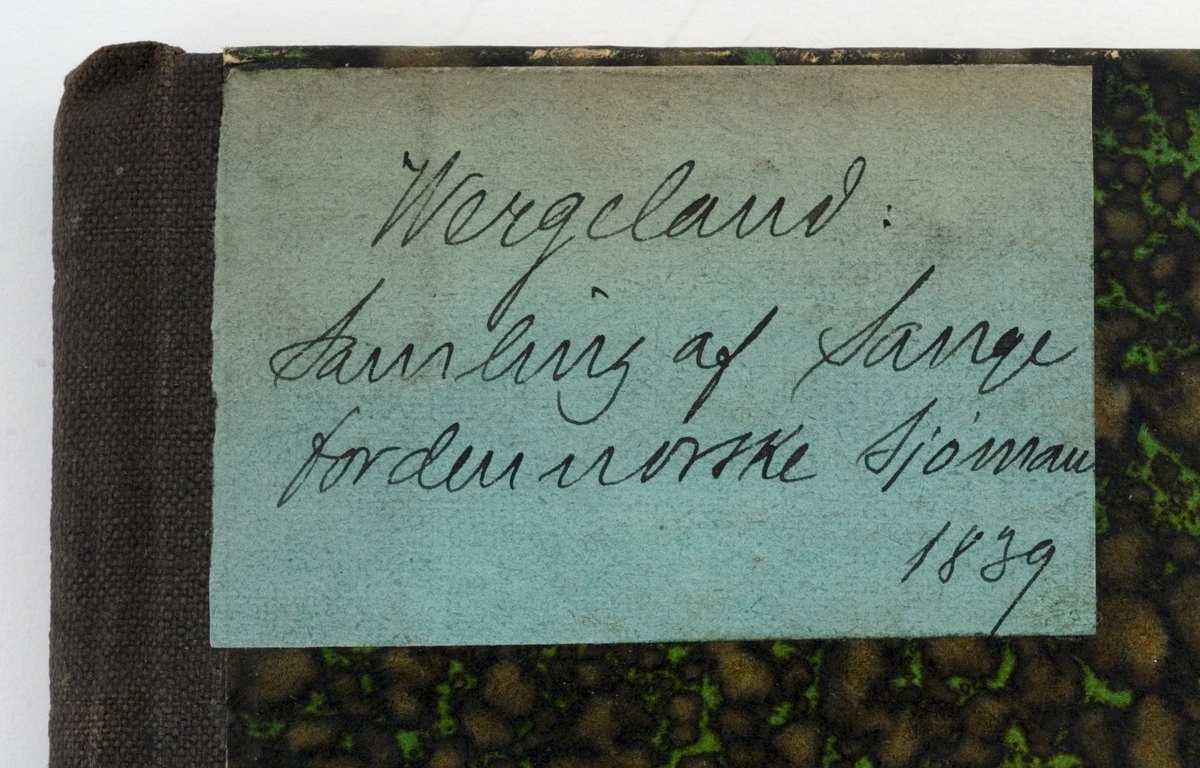 Wergeland:
Samling af Sange
for den norske Sjöman
1839